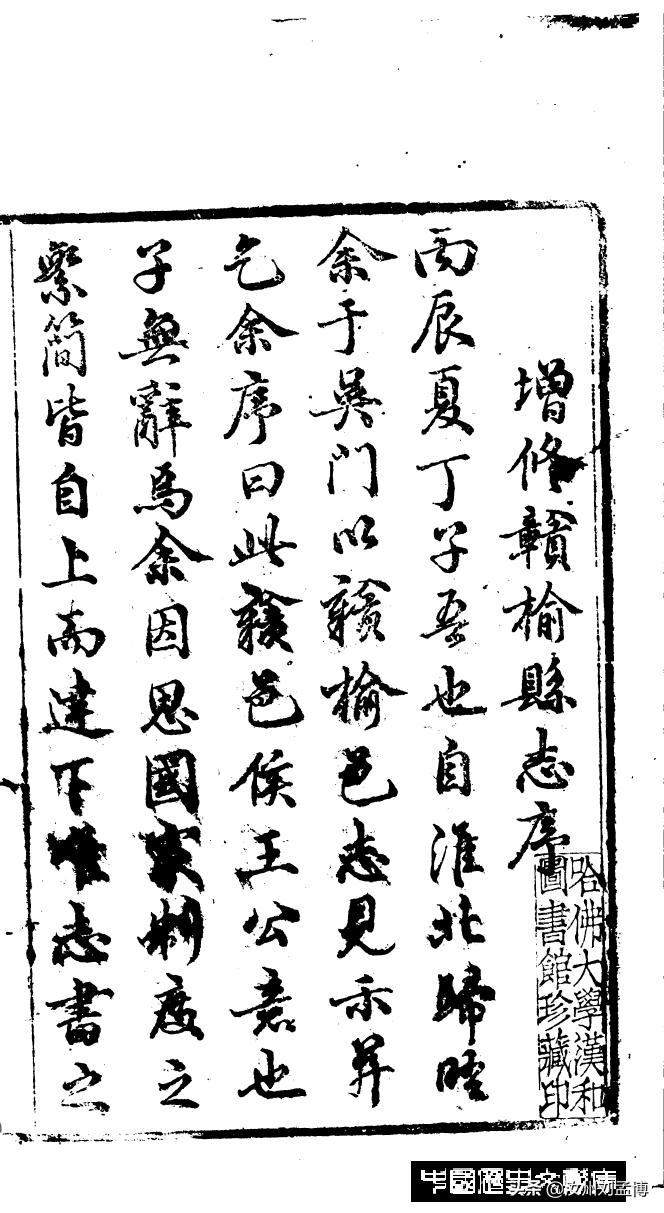 增修贛榆縣志序
丙辰夏丁子吾也自淮北歸晤
余于吳門以贛榆邑志見示并
乞余序曰此贛邑侯王公意也
子無辭焉余因思國家制度之
繁簡皆自上而達下唯志書之
哈佛大學漢和
圖書館珍藏印
中國歷史文獻庫
头条 @汝州刘孟博